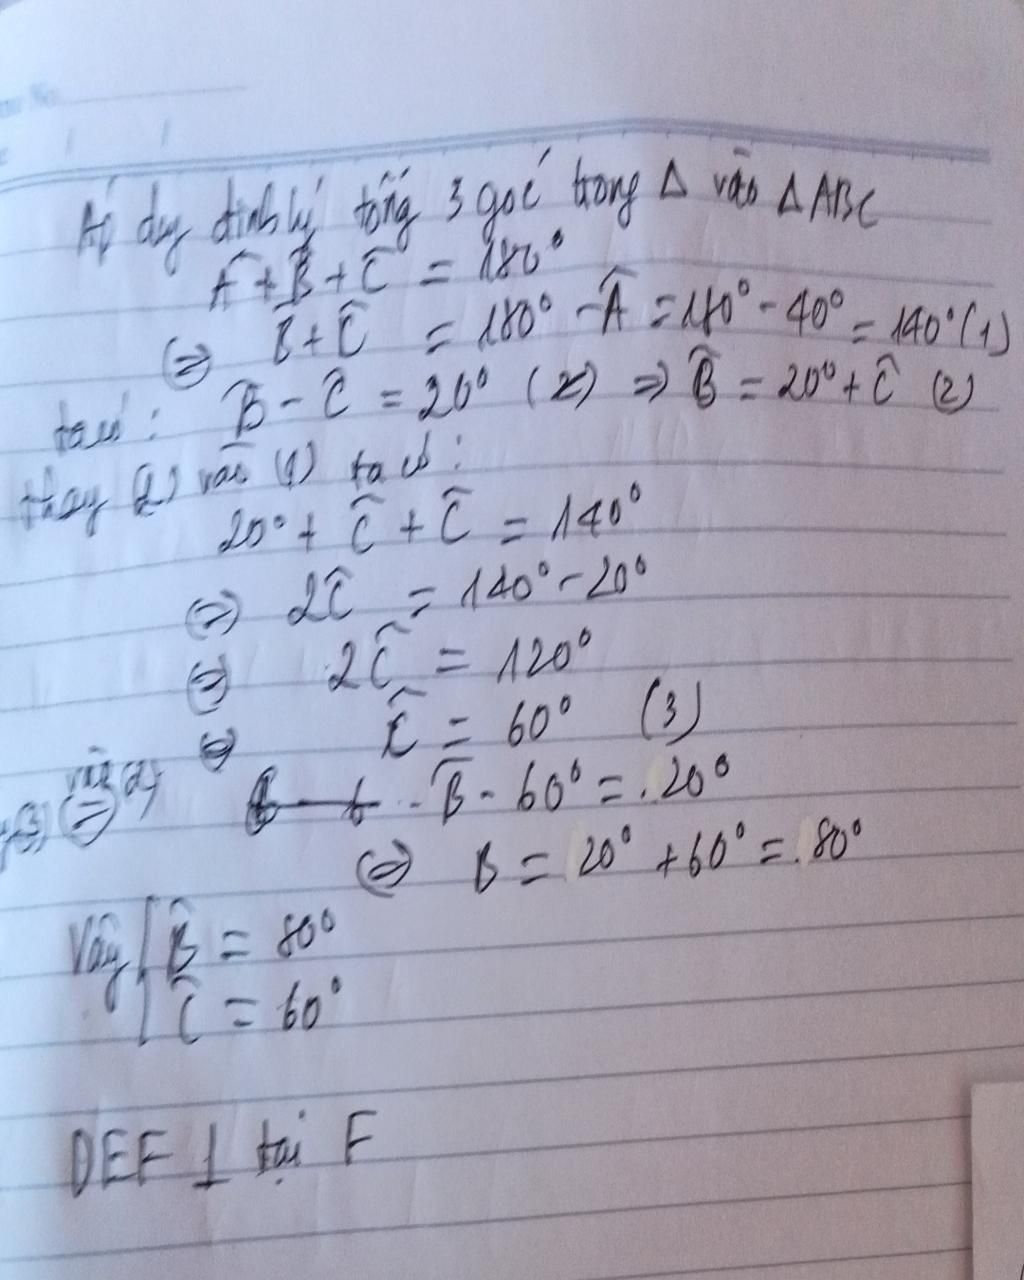 Áp dụng định lý tổng 3 góc trong Δ vào ΔABC
Â + B̂ + Ĉ = 180°
(=) B̂ + Ĉ = 180° - Â = 180° - 40° = 140° (1)
ta có : B̂ - Ĉ = 20° (2) => B̂ = 20° + Ĉ (2)
thay (2) vào (1) ta có :
20° + Ĉ + Ĉ = 140°
(=) 2Ĉ = 140° - 20°
(=) 2Ĉ = 120°
(=) Ĉ = 60° (3)
(3) (=) vào (2) B̂ - 60° = 20°
(=) B = 20° + 60° = 80°
Vậy B̂ = 80°
Ĉ = 60°
DEF ⊥ tại F